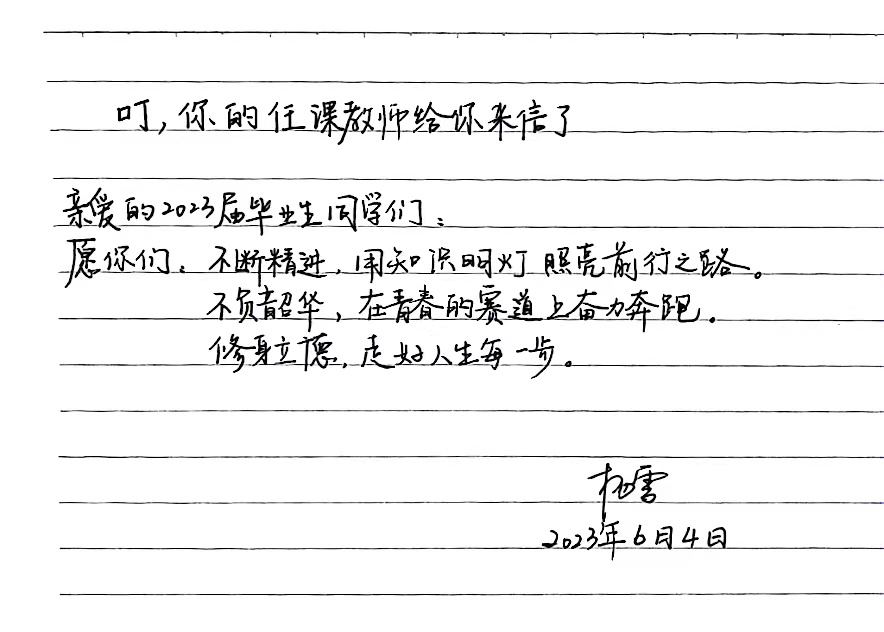 叮,你的任课教师给你来信了
亲爱的2023届毕业生同学们:
愿你们:不断精进,用知识明灯照亮前行之路。
不负韶华,在青春的赛道上奋力奔跑。
修身立德,走好人生每一步。
雪
2023年6月4日